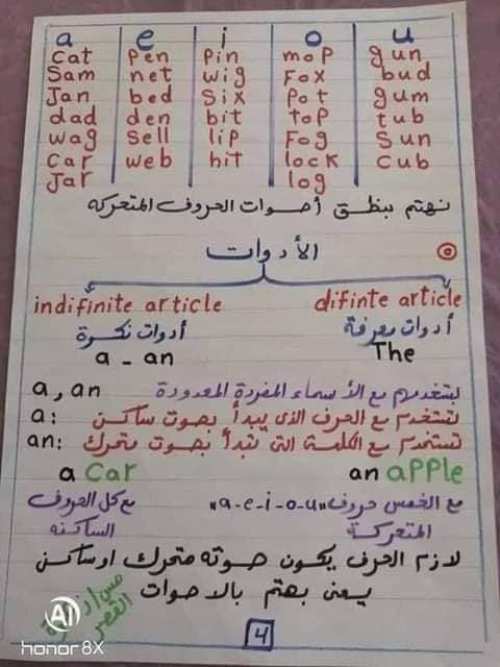 a e i o u
cat pen pin mop gun
Sam net wig Fox bud
Jan bed Six Pot gum
dad den bit top tub
wag Sell lip Fog Sun
Car web hit lock Cub
Jar log
نهتم بنطق أصوات الحروف المتحركه
الأدوات
indifinite article difinte article
أدوات نكرة أدوات معرفة
a - an The
a , an نستخدمهم مع الأسماء المفردة المعدودة
a: تستخدم مع الحرف الذى يبدأ بصوت ساكن
an: تستخدم مع الكلمة التى تبدأ بصوت متحرك
a Car an apple
مع كل الحروف الساكنه
مع الخمس حروف "a-e-i-o-u" المتحركة
لازم الحرف يكون صوته متحرك او ساكن
يعنى بهتم بالاصوات
4
AI
honor 8X